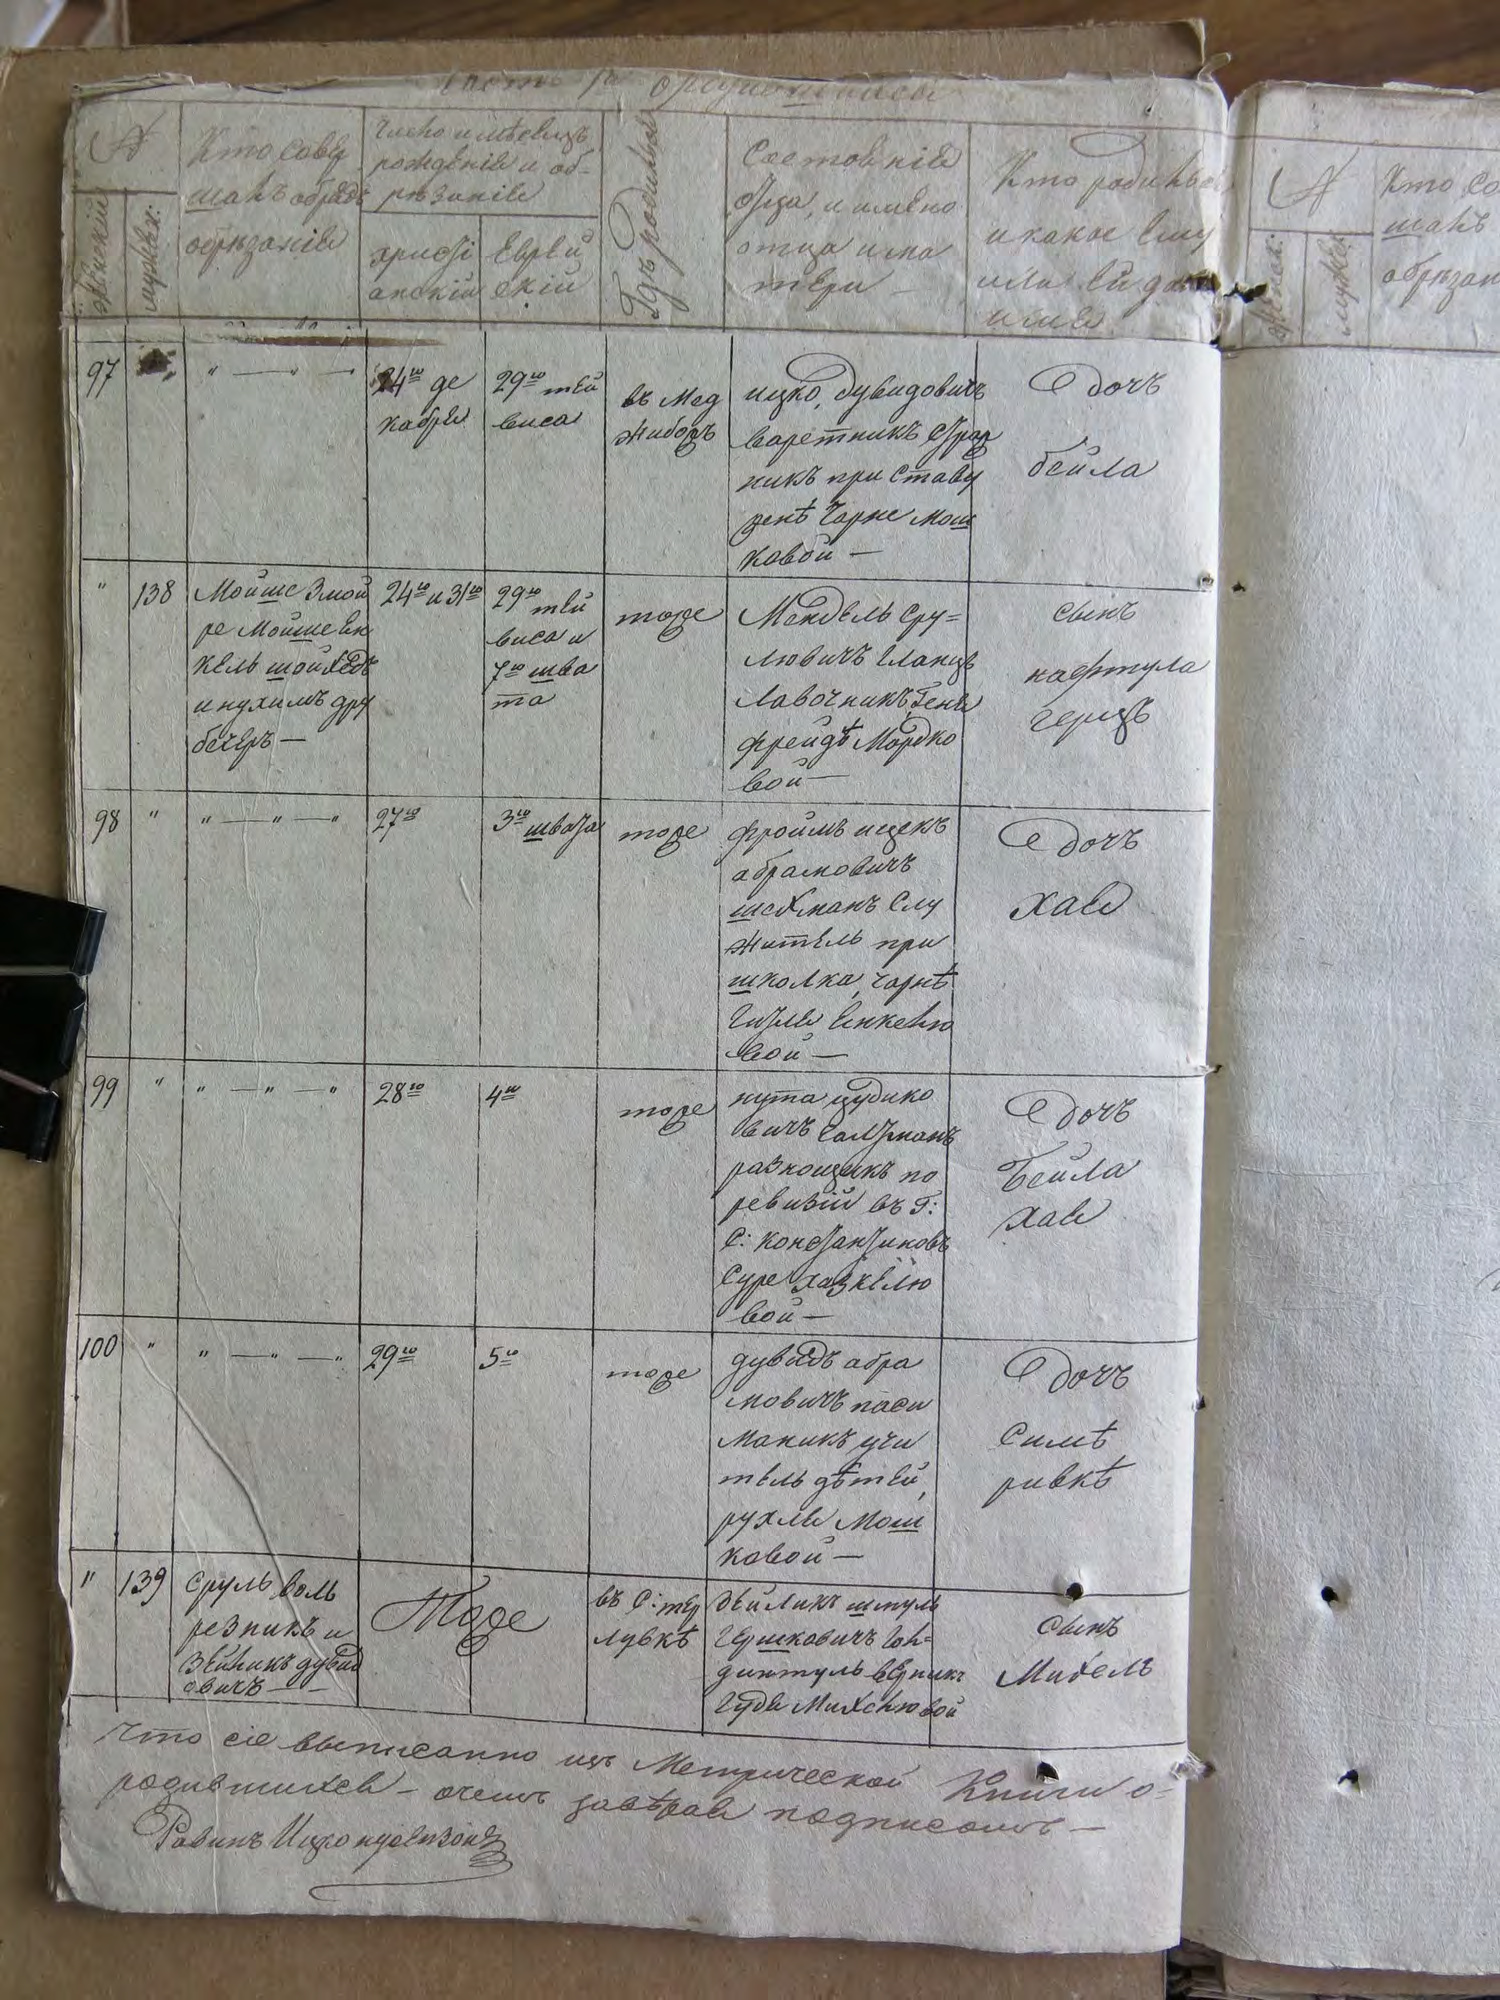 Часть 1я о родившихся
№
женскій
мужеск:
Кто совер
шалъ обрядъ
обрѣзанія
Число и мѣсяцъ
рожденія и об-
рѣзанія
христі
анскій
Еврей
скій
Гдѣ родился
Состояніе
отца, и имена
отца и ма
тери —
Кто родился
и какое ему
или ей дано
имя
97
" — " —
24го де
кабря
29го тей
виса
въ Мед
жибожѣ
ицко дувидовичъ
при ставу
Чарне мош
ковой —
дочь
бейла
"
138
Мойше Змой
ре Мойше ен
кель шойхедъ
и нухимъ дру
бечеръ —
24го и 31го
29го тей
виса и
7го шва
та
тоже
Мендель сру=
лювичъ гланцъ
лавочникъ, Геня
фрейдѣ Мордко
вой —
сынъ
нафтула
герцъ
98
"
" — " — "
27го
3го швата
тоже
фроимъ ицекъ
абрамовичъ
шехманъ слу
житель при
школка, чарнѣ
гитля енкелю
вой —
дочь
хая
99
"
" — " — "
28го
4го
тоже
нута иудико
вичъ галтманъ
разнощикъ по
ревизіи въ г:
С: константиновѣ
суре хазкелю
вой —
дочь
бейла
хая
100
"
" — " — "
29го
5го
тоже
дувидъ абра
мовичъ паси
маникъ учи
тель дѣтей,
рухля мош
ковой —
дочь
симѣ
ривкѣ
"
139
сруль воль
резникъ и
зейликъ дувид
овичъ —
Тоже
въ с: тер
лувкѣ
зейликъ шмуль
гершковичъ гол=
Гудя Михелювой
сынъ
Михель
что сіе выписанно изъ Метрической Книги о-
родившихся — очемъ завѣряя подписомъ —
Равинъ Ицко